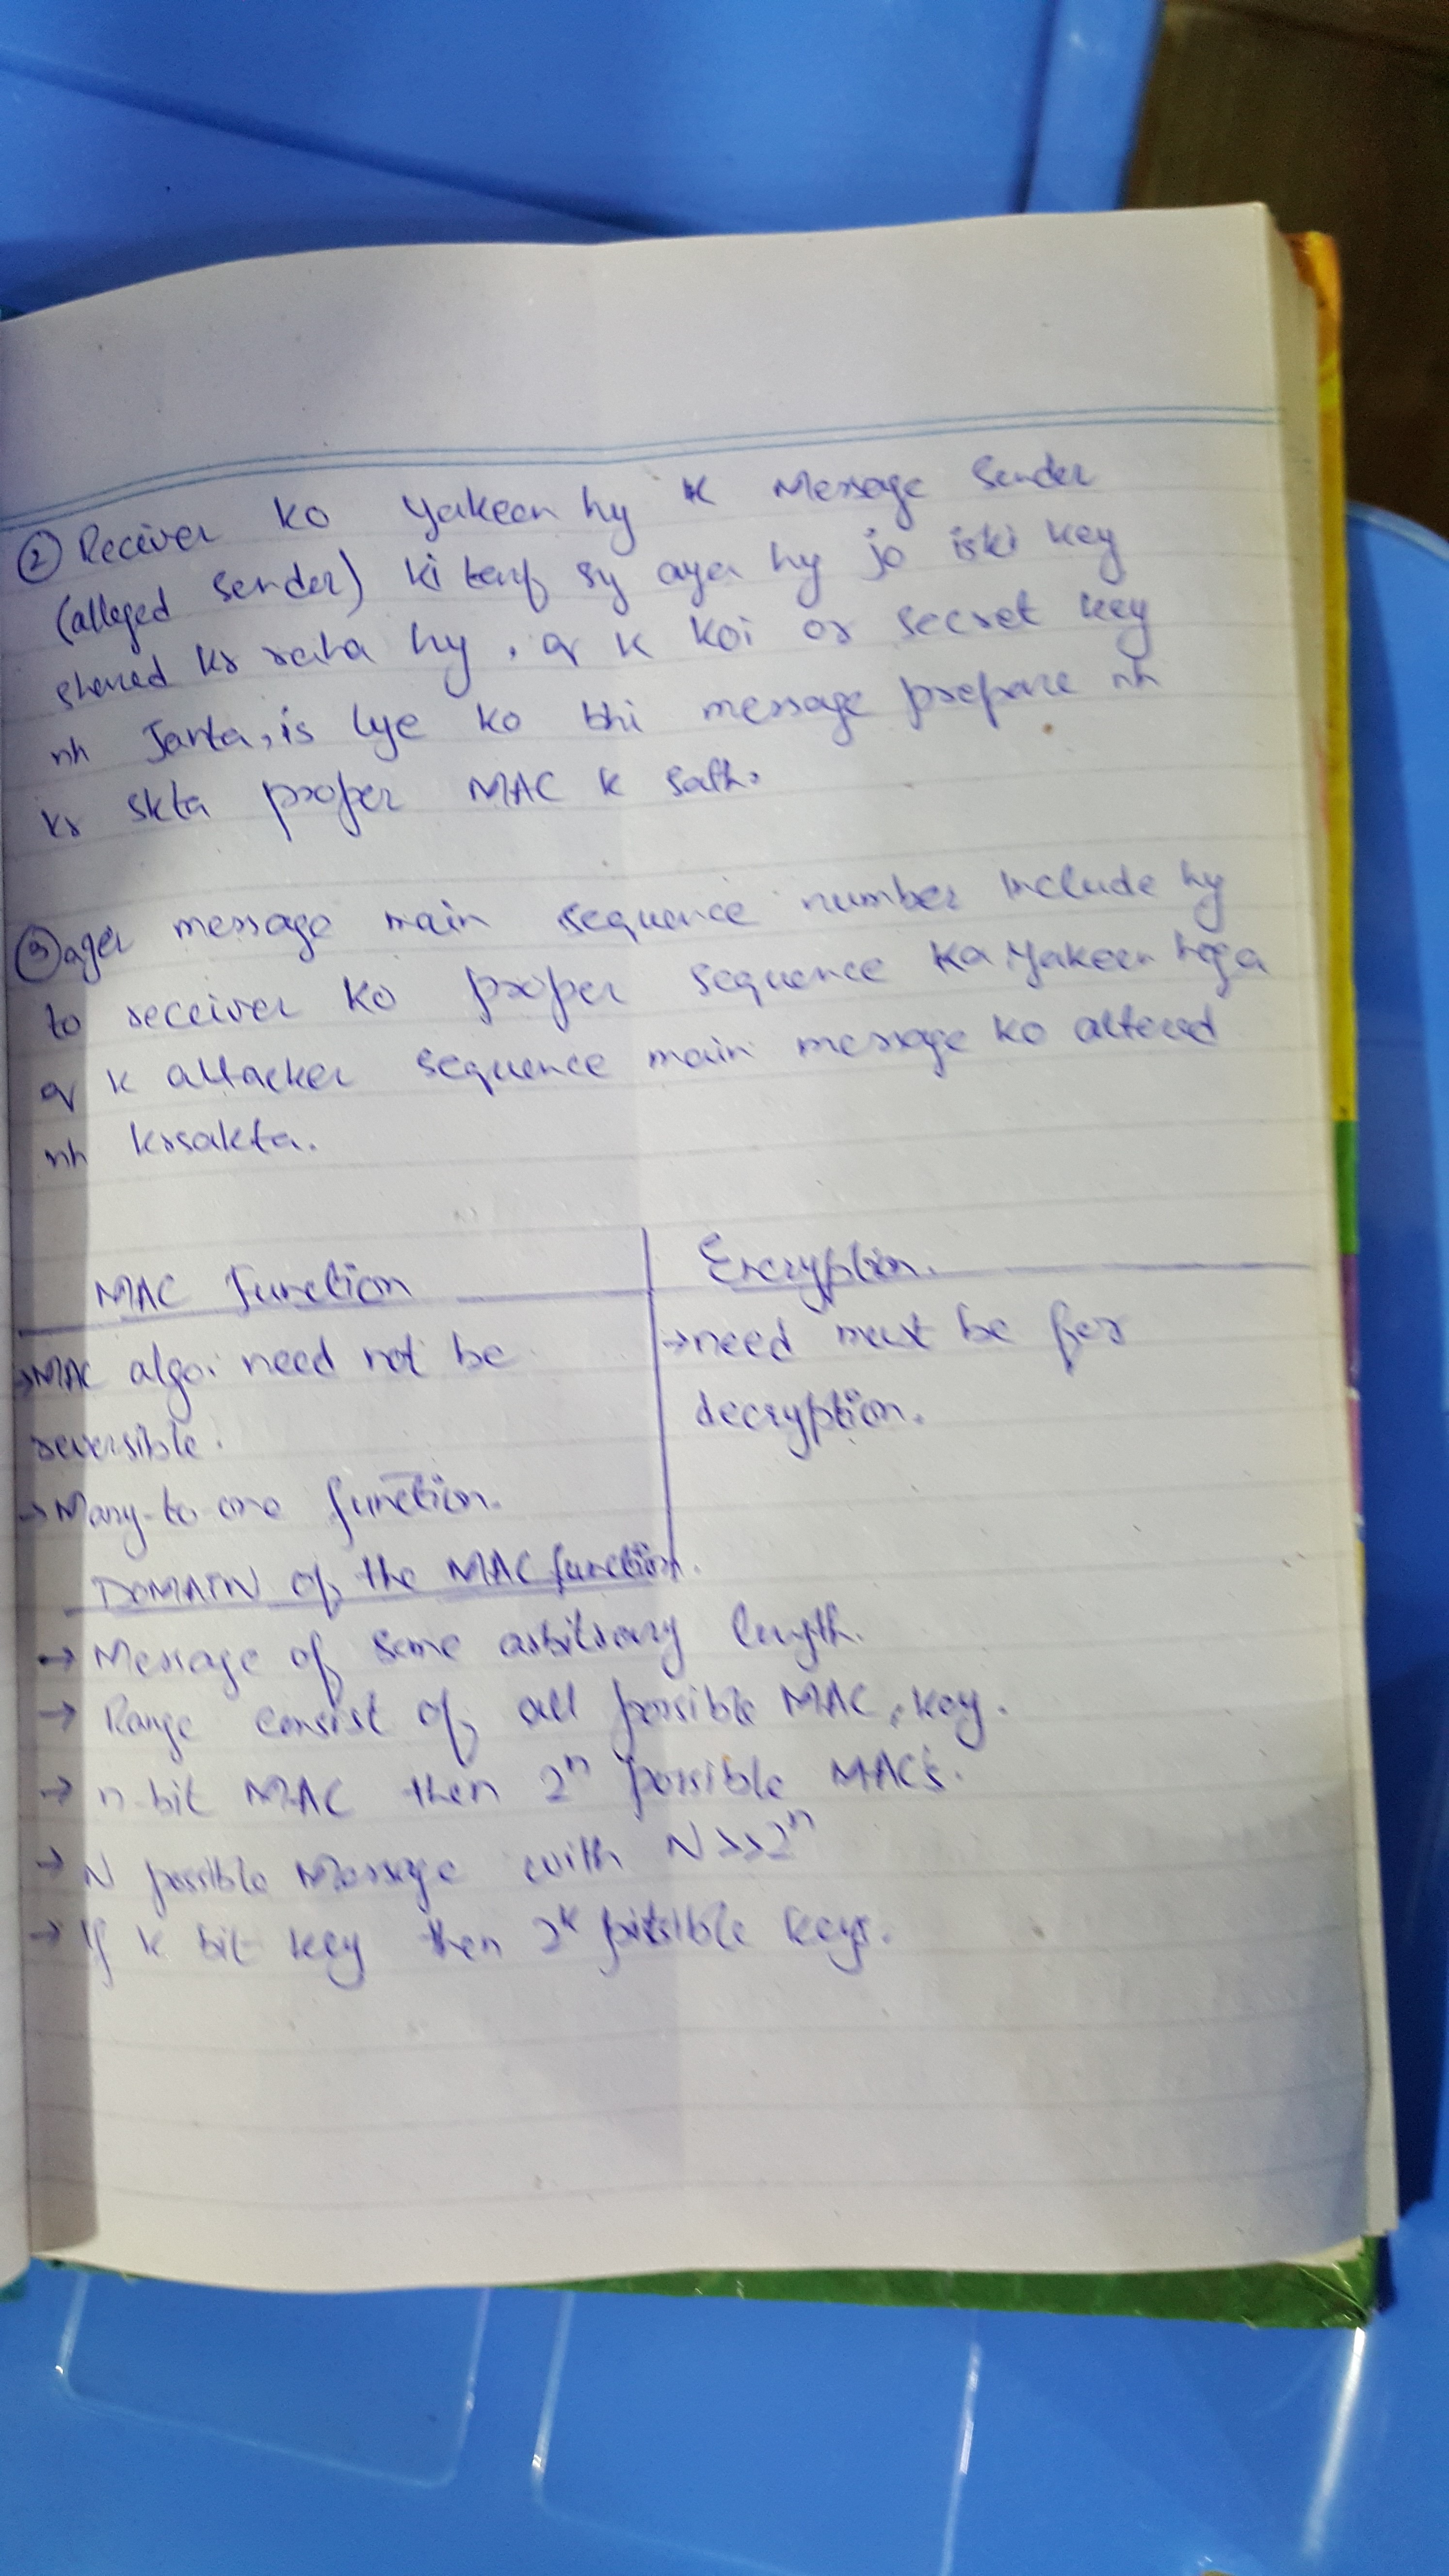 ② Reciver ko yakeen hy k Message Sender
(alleged sender) ki tarf sy aya hy jo iski key
shared kr raha hy, or k koi or secret key
nh Janta, is lye ko bhi message prepare nh
kr skta proper MAC k sath.
③ ager message main sequence number include hy
to receiver ko proper sequence ka yakeen hoga
or k attacker sequence main message ko altered
nh krsakta.
MAC Function
Encryption.
→ MAC algo. need not be
reversible.
→ need must be for
decryption.
→ Many-to-one function.
DOMAIN of the MAC function.
→ Message of some arbitrary length.
→ Range consist of all possible MAC, key.
→ n-bit MAC then 2ⁿ possible MAC's.
→ N possible Message with N>>2ⁿ
→ If k bit key then 2ᵏ possible keys.